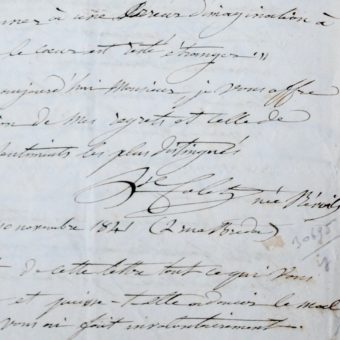 à une erreur d'imagination à
le cœur est resté étranger
aujourd'hui Monsieur je vous offre
de mes regrets et celle de
sentiments les plus distingués
Colet née Révoil
10 novembre 1841 (2 rue Breda)
de cette lettre tout ce qui vous
et puisse-t-elle adoucir le mal
vous ai fait involontairement.